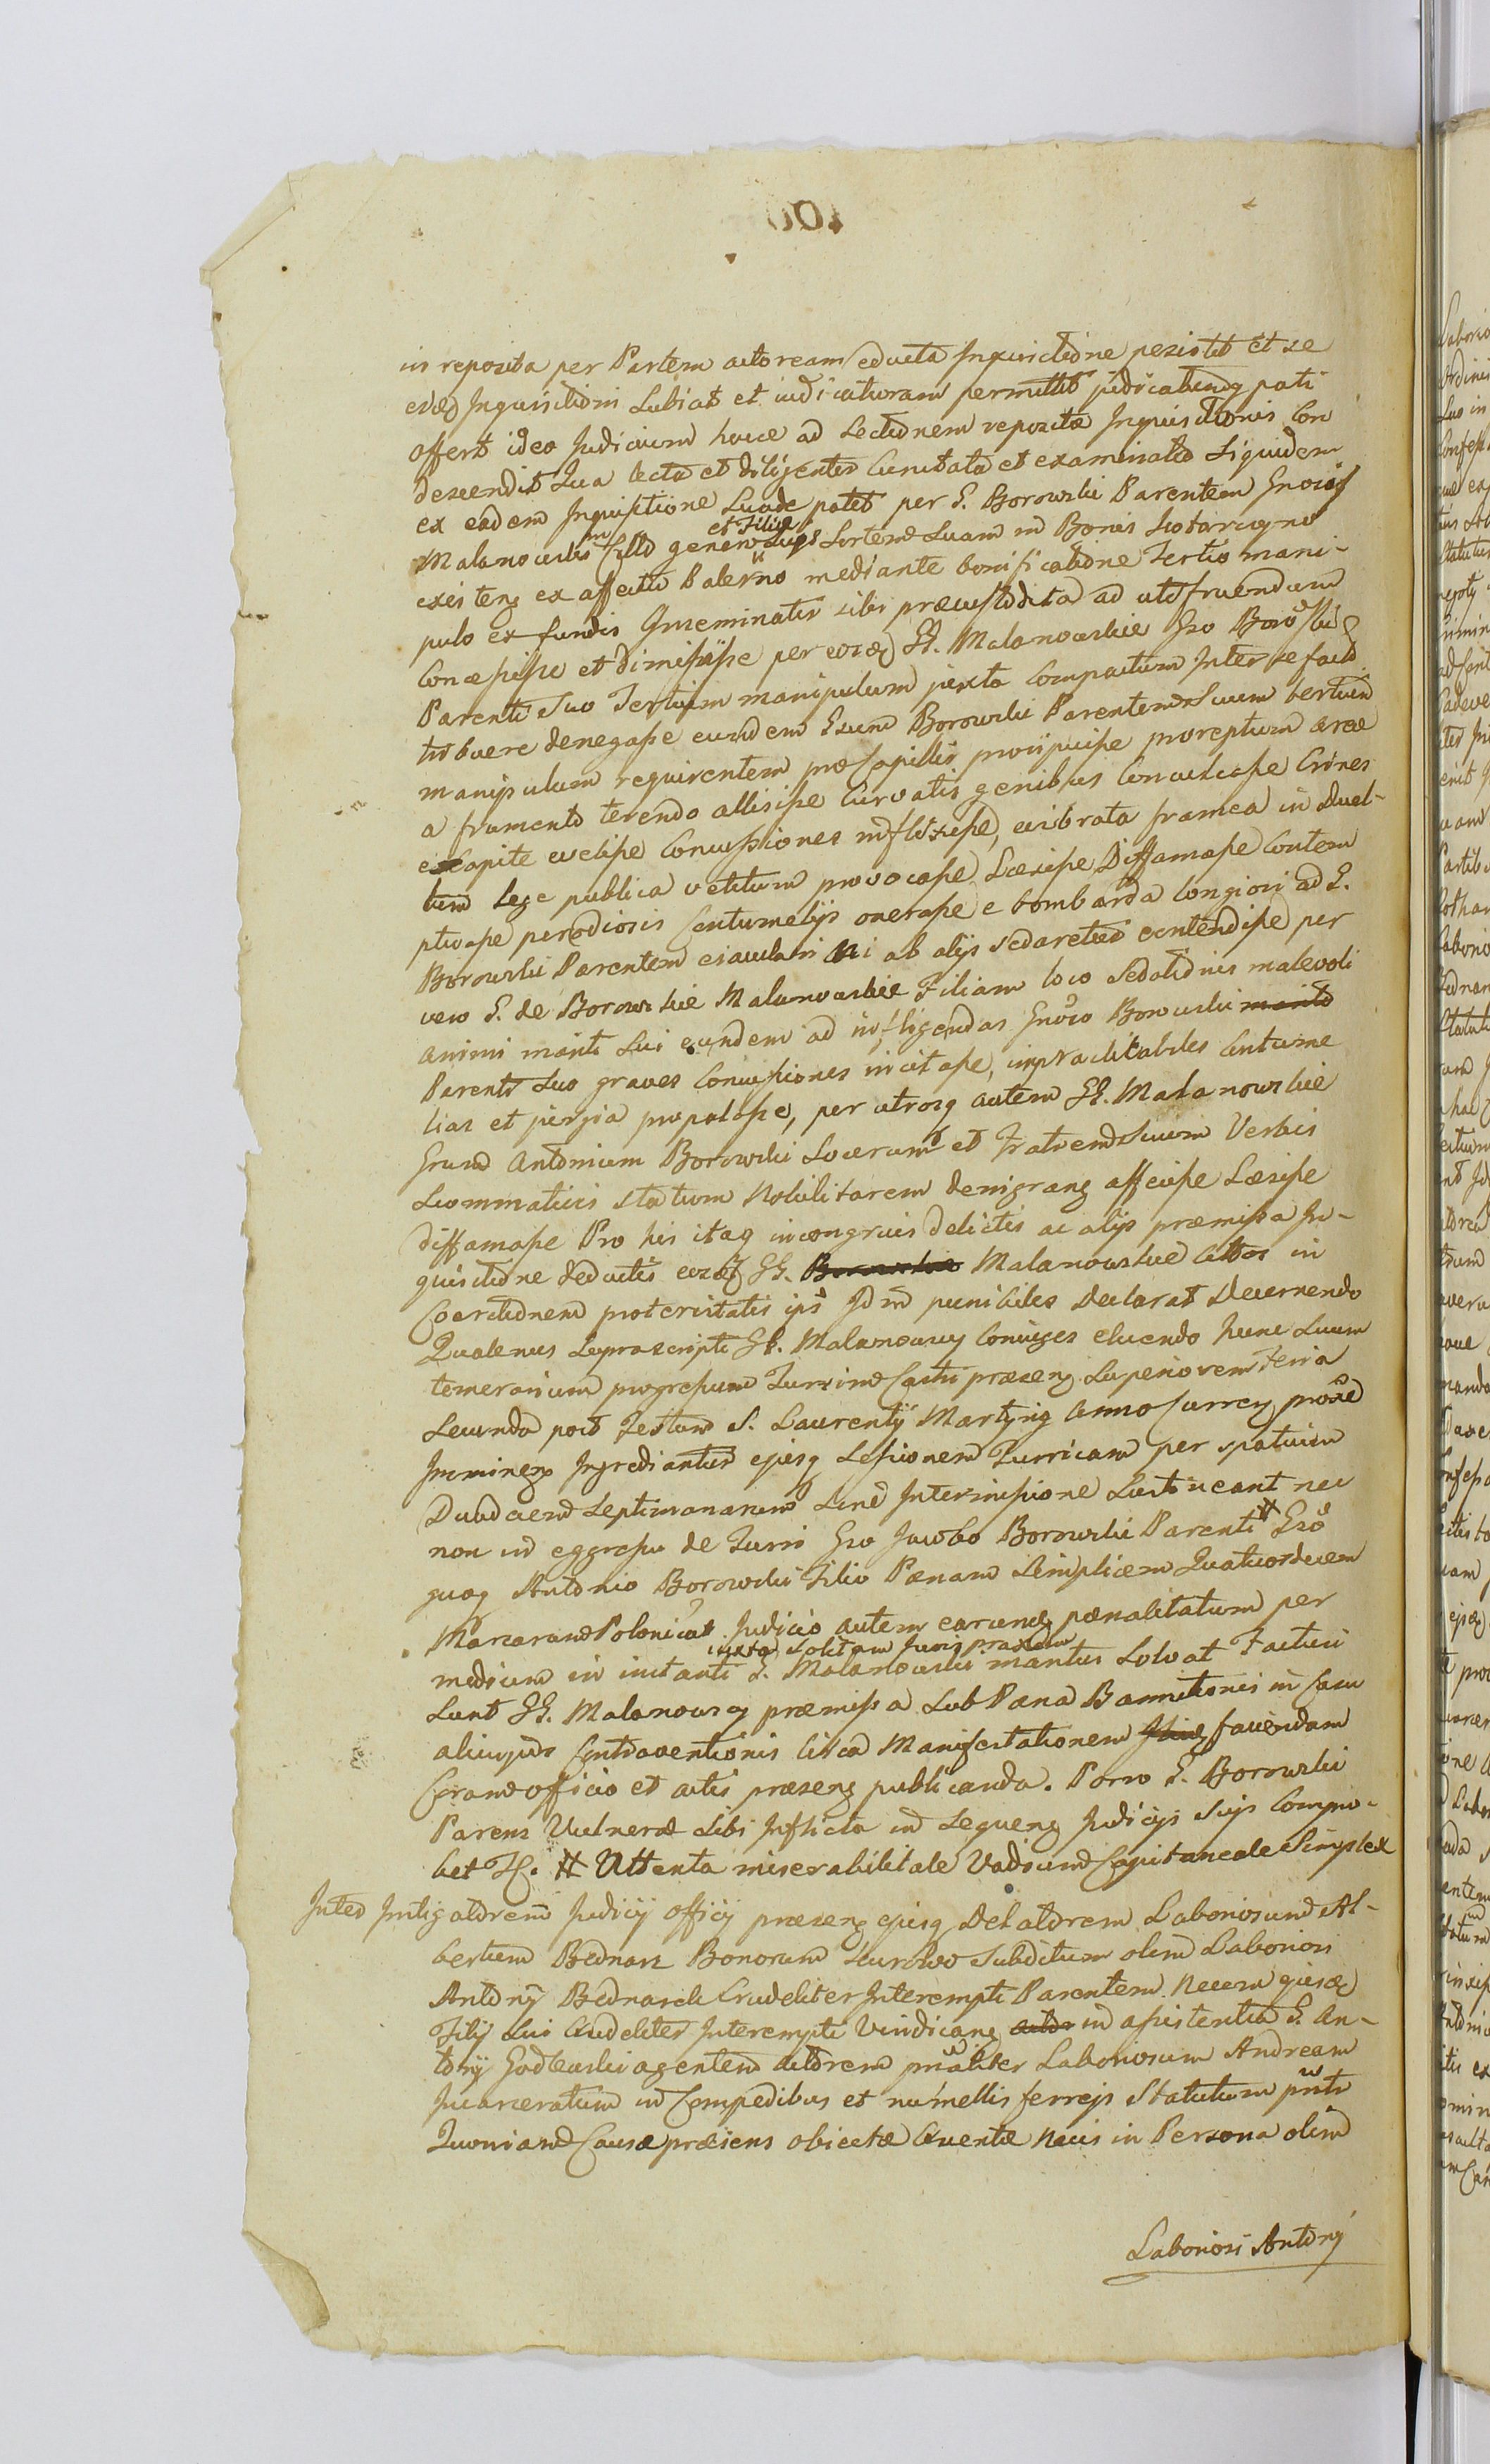 in reposita per Partem actoream educta Inquisitione persistit et se
eidem Inquisitioni subiat et iudicaturam permittit iudicatumq pati
offert ideo Judicium hocce ad Lectionem repositæ Inquisitionis Con
descendit Qua lecta et diligenter Scrutata et examinata Siquidem
ex eadem Inquisitione Luade patet per G. Borowski Parentem Gnoso
et Filiæ
Malanowski genero Suis Sortem Suam in Bonis
existens ex affectu Paterno mediante bonificatione Tertio mani-
pulo ex fundis Inseminatis sibi præcustodita ad utifruendum
Concessisse et dimisisse per eosd GG. Malanowskie Gso Borowski
Parenti Suo Tertium manipulum juxta Compactum Inter se fact
tribuere denegasse eundem Gsum Borowski Parentem Suum tertium
manipulum requirentem præ Capillis proripuisse proreptum areæ
a frumento terendo allisisse Curvatis genibus Conculcasse Crines
e Capite evelisse Concussiones inflixisse, evibrata framea in Duel-
lum Lege publica vetitum provocasse Læsisse Diffamasse Contem
ptisasse perodiosis Contumelijs onerasse e bombarda longiori ad G.
Borowski Parentem eiaculari ni ab alijs sedaretur contendisse per
vero G. de Borowskie Malanowskie Filiam loco Sedationis malevoli
animi mariti Sui eundem ad infligendas Gnoso Borowski marito
Parenti Suo graves Concussiones incitasse, impracticabiles Contume
lias et jurgia propalasse, per utrosq autem GG. Malanowskie
Gsum Antonium Borowski Socerum et Fratrem Suum Verbis
Scommaticis statum Nobilitarem denigrans affecisse Læsisse
diffamasse Pro his itaq incongruis delictis ac alijs præmissa In-
quisitione deductis eosd GG. Borowskie Malanowskie Cttos in
Coercitionem protervitatis ipsi Jdm punibiles declarat Decernendo
Quatenus Suprascripti GG. Malanowscy Coniuges eluendo hunc Suum
temerarium progressum Turrim Castri præsens Superiorem Feria
Secunda post Festum S. Laurentij Martyris Anno Curren proxe
Imminen Ingrediantur ejusq Sessionem Turricam per spatium
Duodecem Septimanarum Sine Intermissione Sustineant nec
non in eggressu de Turri Gso Jacobo Borowski Parenti # Gso
quoq Antonio Borowski Filio Pænam Simplicem Quatuordecem
Marcarum Polonical Judicio autem earundq pænalitatum per
juxta solitam Juris praxim
medium in instanti G. Malanowski maritus Solvat Facturi
Sunt GG. Malanowscy præmissa Sub Pæna Bannitionis in Casu
alicujus Contraventionis Citra Manifestationem faciendam
Coram officio et actis præsens publicanda. Porro G. Borowski
Parens Vulnera Sibi Inflicta in Sequens Judicijs Suis Compro-
bet # Attenta miserabilitate Vadium Capitaneale Simplex
Inter Instigatorem Judicij officij præsens ejusq Delatorem Laboriosum Al-
bertum Bednarz Bonorum Subditum olim Laboriosi
Antonij Bednarek Crudeliter Interempti Parentem Necem ejusd
Filij Sui Crudeliter Interempti Vindicans actor in assistentia G. An-
tonij Godlewski agentem actorem prnaliter Laboriosum Andream
Incarceratum in Compedibus et numellis ferreis Statutum pntr
Quoniam Causa præsens obiectæ Cruentæ Necis in Persona olim
Laboriosi Antonij